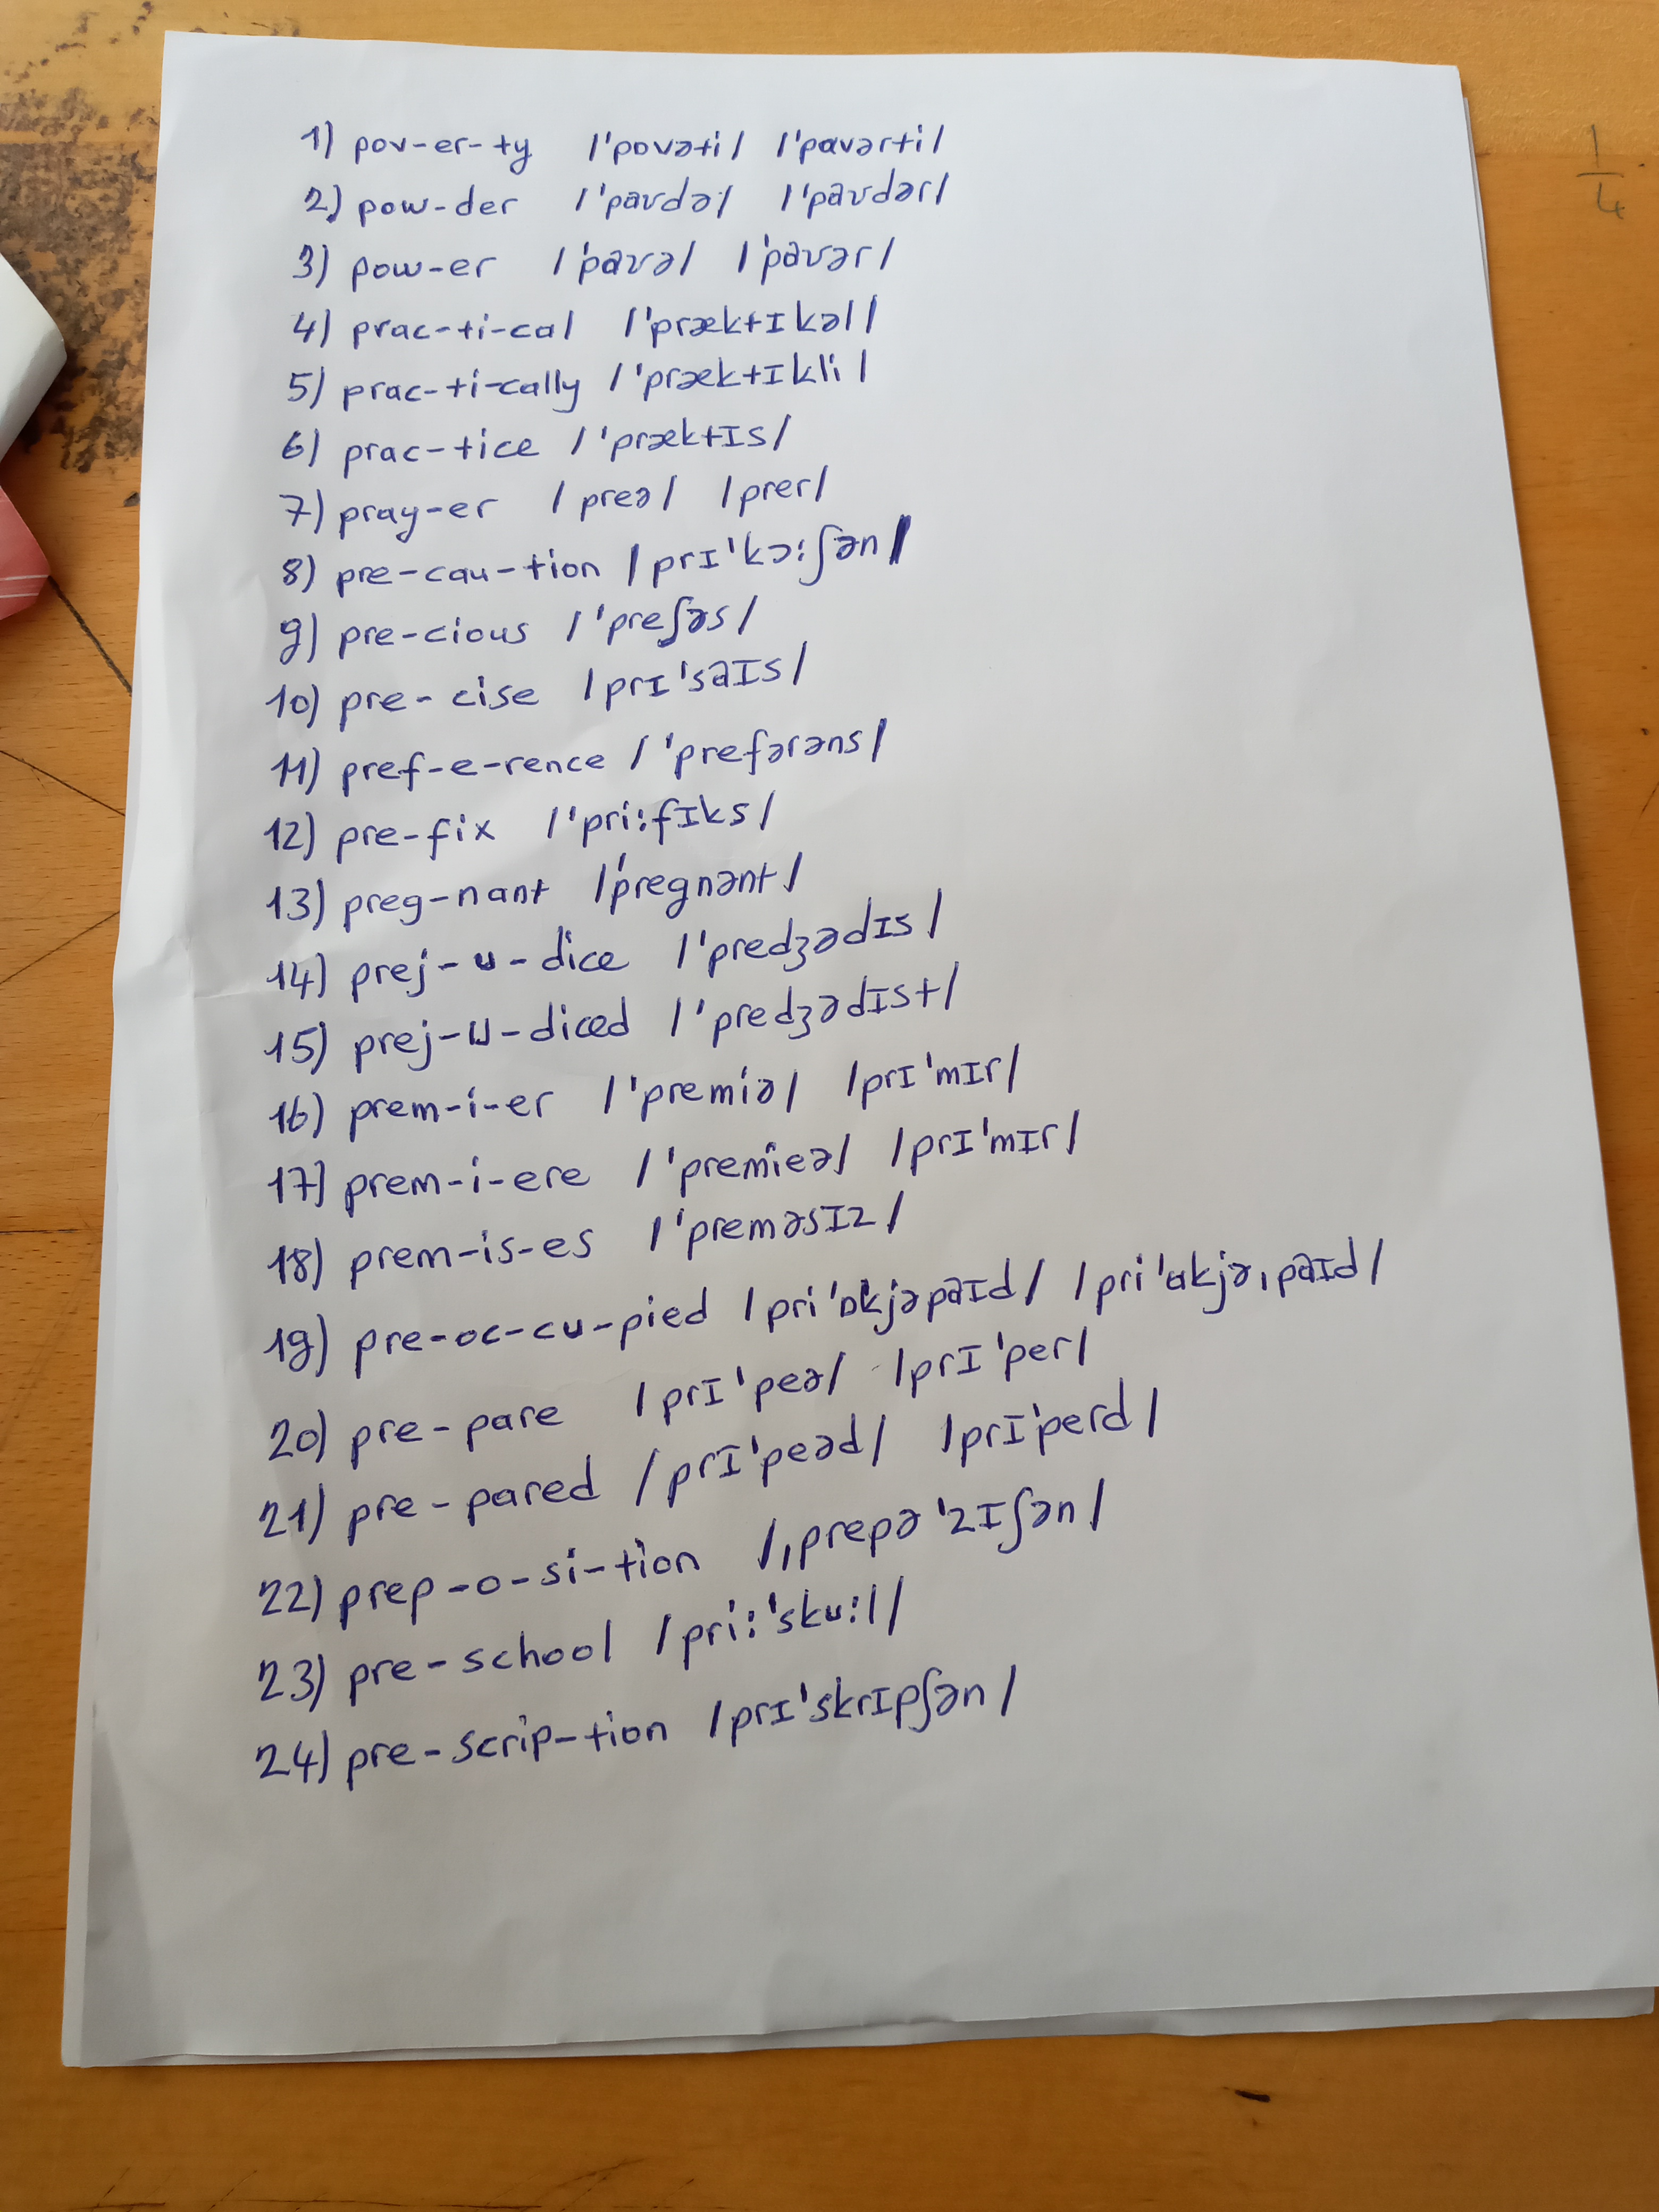 1) pov-er-ty /'povəti/ /'pavərti/
2) pow-der /'paʊdə/ /'paʊdər/
3) pow-er /'paʊə/ /'paʊər/
4) prac-ti-cal /'præktɪkəl/
5) prac-ti-cally /'præktɪkli/
6) prac-tice /'præktɪs/
7) pray-er /preə/ /prer/
8) pre-cau-tion /prɪ'kɔːʃən/
9) pre-cious /'preʃəs/
10) pre-cise /prɪ'saɪs/
11) pref-e-rence /'prefərəns/
12) pre-fix /'priːfɪks/
13) preg-nant /'pregnənt/
14) prej-u-dice /'predʒədɪs/
15) prej-u-diced /'predʒədɪst/
16) prem-i-er /'premiə/ /prɪ'mɪr/
17) prem-i-ere /'premieə/ /prɪ'mɪr/
18) prem-is-es /'preməsɪz/
19) pre-oc-cu-pied /pri'ɒkjəpaɪd/ /pri'ɑkjəˌpaɪd/
20) pre-pare /prɪ'peə/ /prɪ'per/
21) pre-pared /prɪ'peəd/ /prɪ'perd/
22) prep-o-si-tion /ˌprepə'zɪʃən/
23) pre-school /priː'skuːl/
24) pre-scrip-tion /prɪ'skrɪpʃən/
1/4